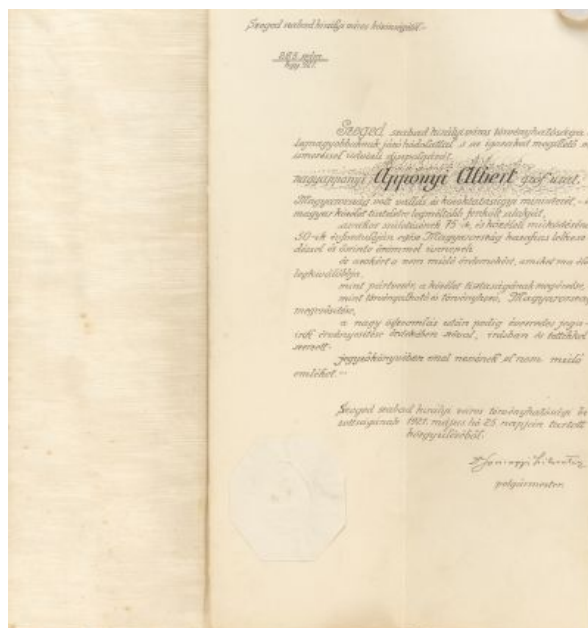 Szeged szabad királyi város közönségétől.
265. szám
kgy. 921.
Szeged szabad királyi város törvényhatósága a
legnagyobbaknak járó hódolattal s az igazakat megillető
ismeréssel üdvözli díszpolgárát,
nagyapponyi Apponyi Albert gróf urat,
Magyarország volt vallás és közoktatásügyi miniszterét,
magyar közélet tiszteletre legméltóbb férfiúi alakját,
amikor születésének 75-ik, és közéleti működésének
50-ik évfordulóján egész Magyarország hazafias lelkese
déssel és őszinte örömmel ünnepek
és azokért a nem múló érdemekért, amiket ma élő
legkiválóbbja,
mint pártvezér, a közélet tisztaságának megóvására,
mint törvényalkotó és törvényhozó, Magyarország
megerősítése,
a nagy összeomlás után pedig ezeréves joga
ink érvényesítése érdekében szóval, írásban és tettekkel
szerzett-
jegyzőkönyvében vési nevének el nem múló
emlékét.-
Szeged szabad királyi város törvényhatósági bi
zottságának 1921. május hó 25. napján tartott
közgyűléséből.
polgármester.